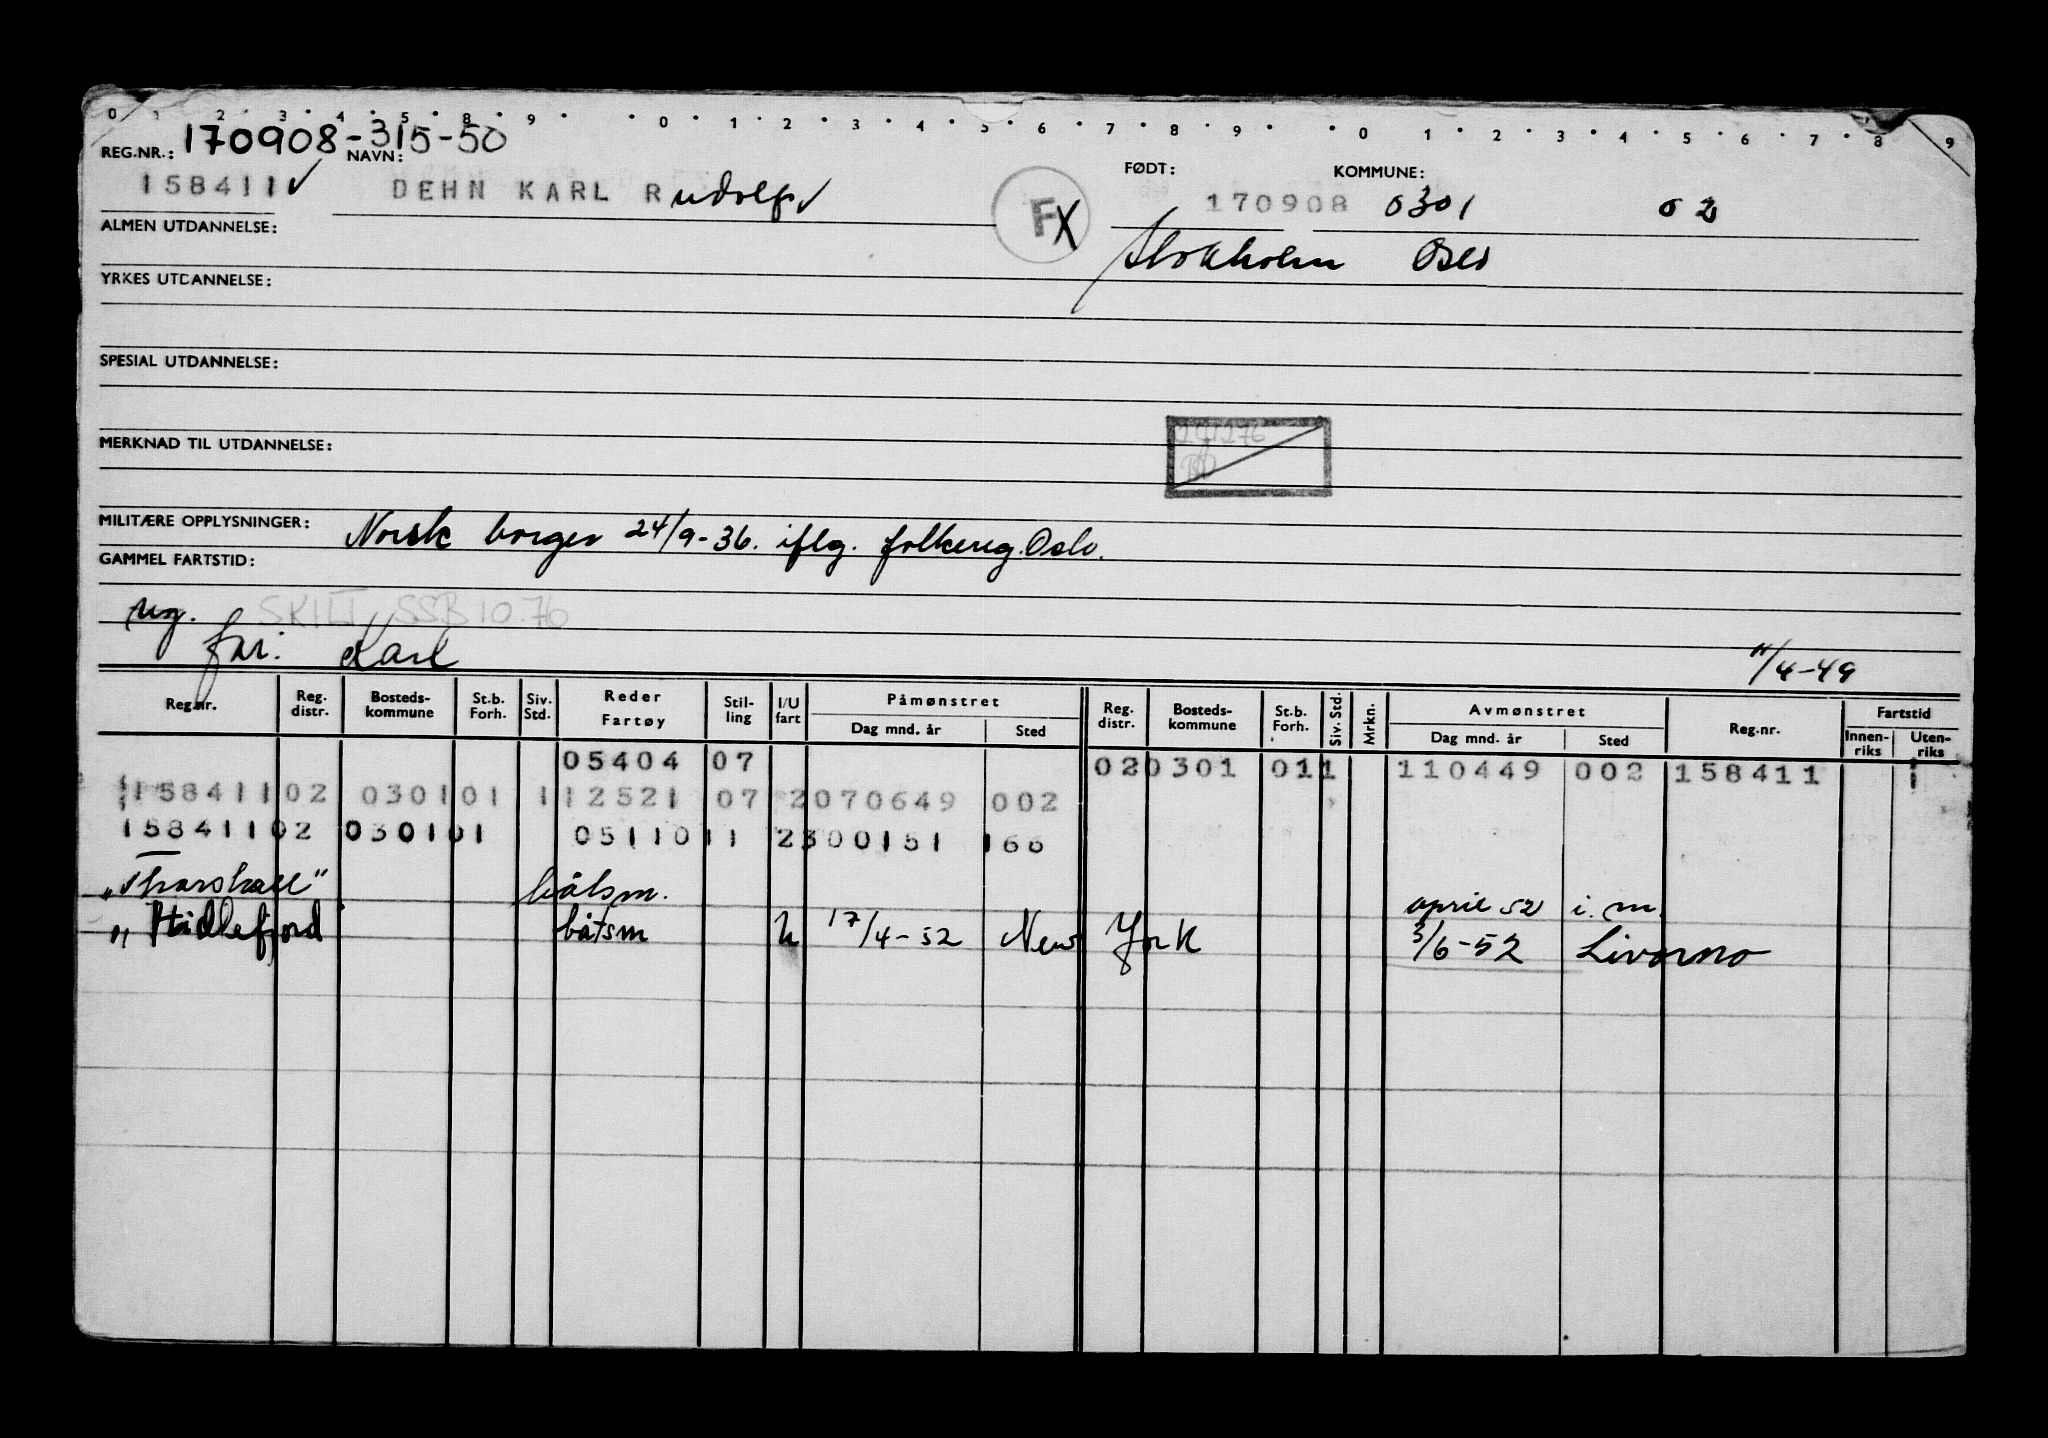 0 1 2 3 4 5 8 9 0 1 2 3 4 5 6 7 8 9 0 1 2 3 4 5 6 7 8 9
REG.NR.: 170908-315-50 NAVN: FØDT: KOMMUNE:
158411 DEHN KARL Rudolf FX 170908 0301 02
ALMEN UTDANNELSE: Stokholm Oslo
YRKES UTDANNELSE:
SPESIAL UTDANNELSE:
MERKNAD TIL UTDANNELSE:
MILITÆRE OPPLYSNINGER: Norsk borger 24/9-36. iflg. folkereg. Oslo.
GAMMEL FARTSTID:
reg. SKILT SSB 10.76
far: Karl 11/4-49
Reg.nr. Reg. distr. Bosteds-kommune St.b. Forh. Siv. Std. Reder Fartøy Stil-ling I/U fart Påmønstret Dag mnd. år Sted Reg. distr. Bosteds-kommune St.b. Forh. Siv. Std. Mrkn. Avmønstret Dag mnd. år Sted Reg.nr. Fartstid Innen-riks Uten-riks
05404 07 020301 011 110449 002 158411 1
158411 02 0301 01 1 12521 07 2 070649 002
158411 02 0301 01 05110 11 2 300151 166
„Thorshall" båtsm. april 52 i. m.
" Hidlefjord båtsm U 17/4-52 New York 3/6-52 Livorno